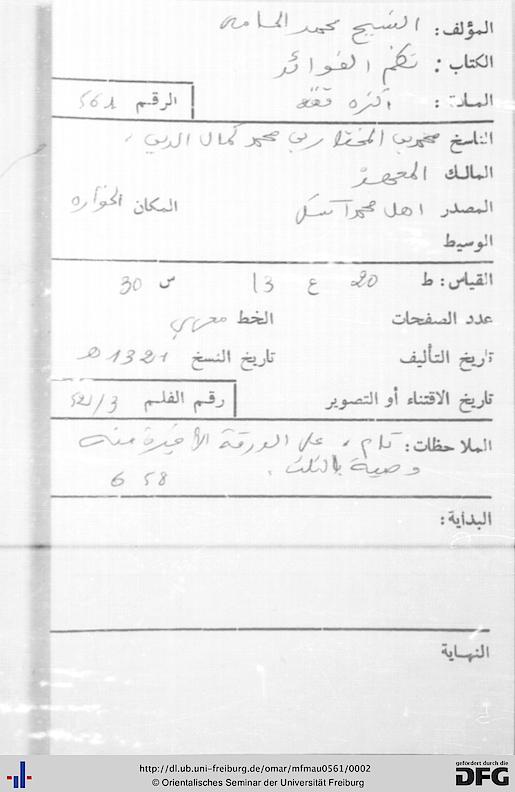 المؤلف: الشيخ محمد المامي
الكتاب: نظم الفوائد
المادة: فقه
الرقم 561
الناسخ محمد بن المختار بن محمد كمال الدين
المالك المعهد
المصدر اهل محمد
المكان
الوسيط
القياس: ط 20 ع 13 س 30
عدد الصفحات
الخط مغربي
تاريخ التأليف
تاريخ النسخ 1321 ه
تاريخ الاقتناء أو التصوير
رقم الفلم 521/3
الملاحظات: تام، على الورقة الأخيرة منه
وصية بالثلث.
6 58
البداية:
النهاية
http://dl.ub.uni-freiburg.de/omar/mfmau0561/0002
© Orientalisches Seminar der Universität Freiburg
gefördert durch die
DFG